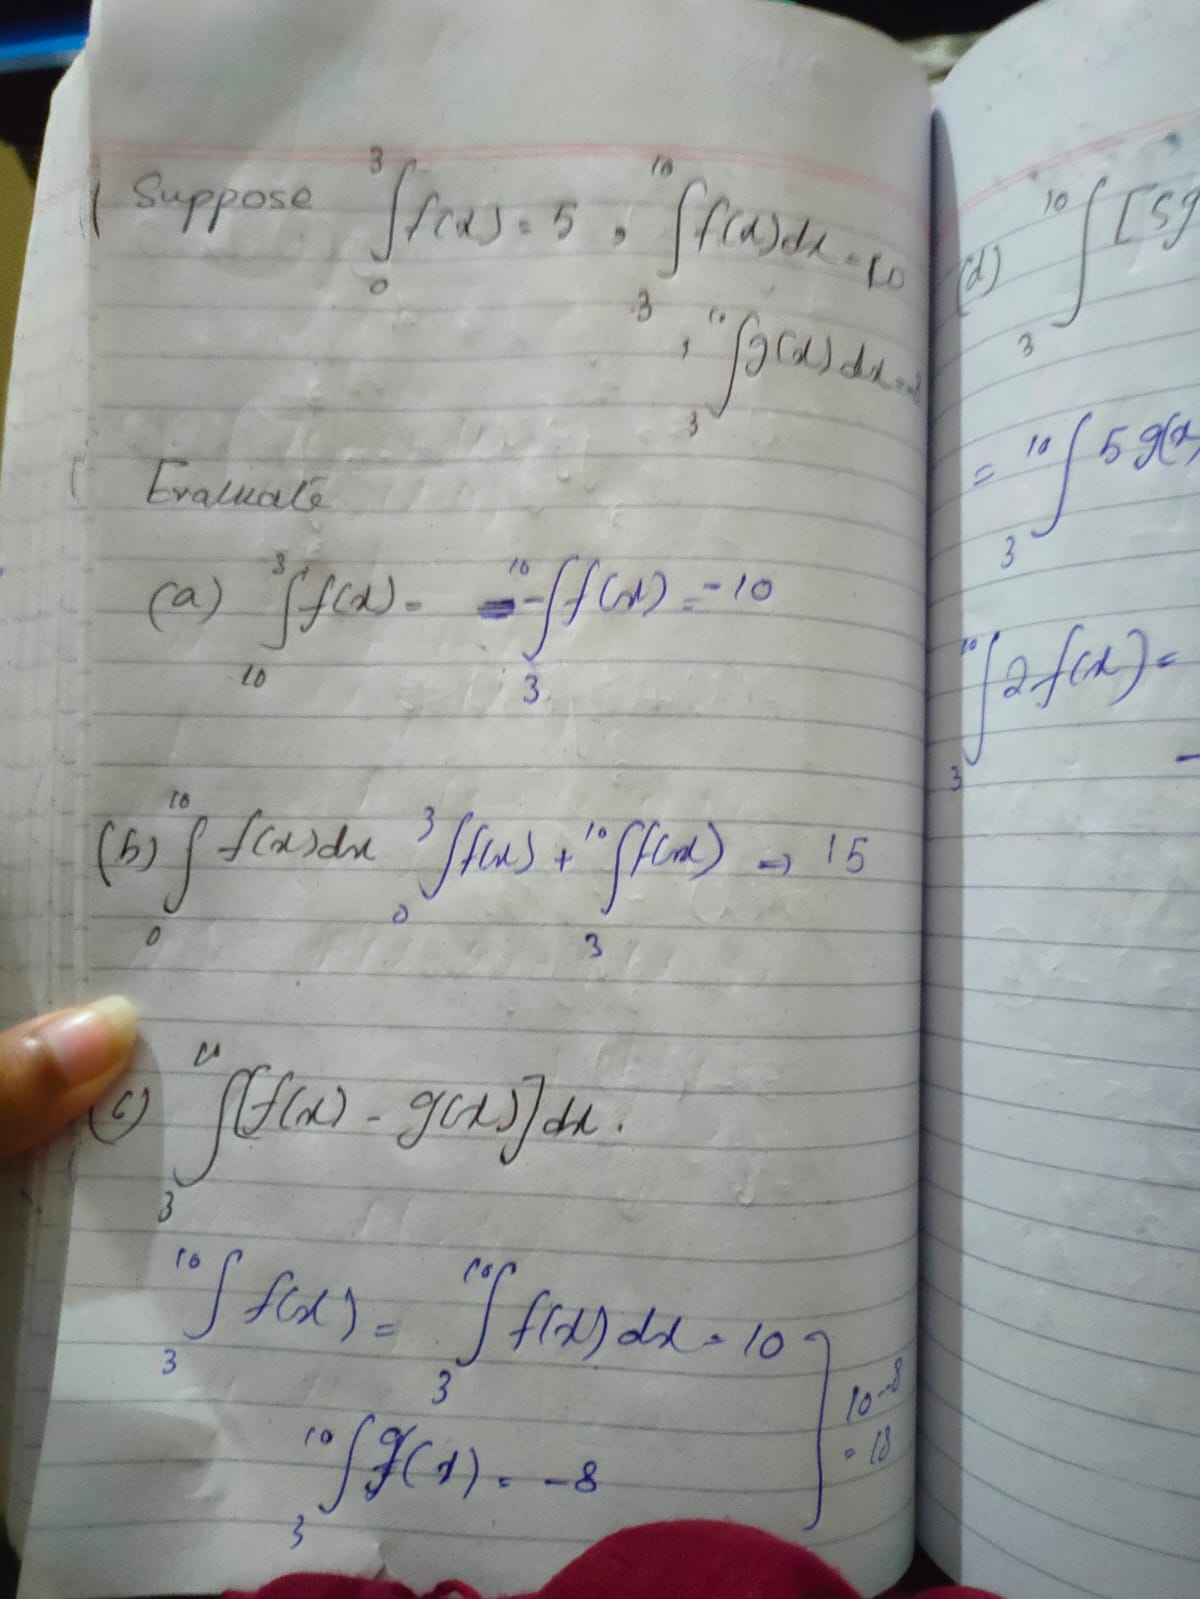 Suppose ∫₀³ f(x) = 5 , ∫₃¹⁰ f(x)dx = 10
, ∫₃¹⁰ g(x) dx = -8
Evaluate
(a) ∫₁₀³ f(x) = -∫₃¹⁰ f(x) = -10
(b) ∫₀¹⁰ f(x)dx ∫₀³ f(x) + ∫₃¹⁰ f(x) ⇒ 15
(c) ∫₃¹⁰ [f(x) - g(x)] dx.
∫₃¹⁰ f(x) = ∫₃¹⁰ f(x) dx = 10
∫₃¹⁰ g(x) = -8
10 - -8
= 18
(d) ∫₃¹⁰ [5g
= ∫₃¹⁰ 5 g(x
∫₃¹⁰ 2 f(x) =